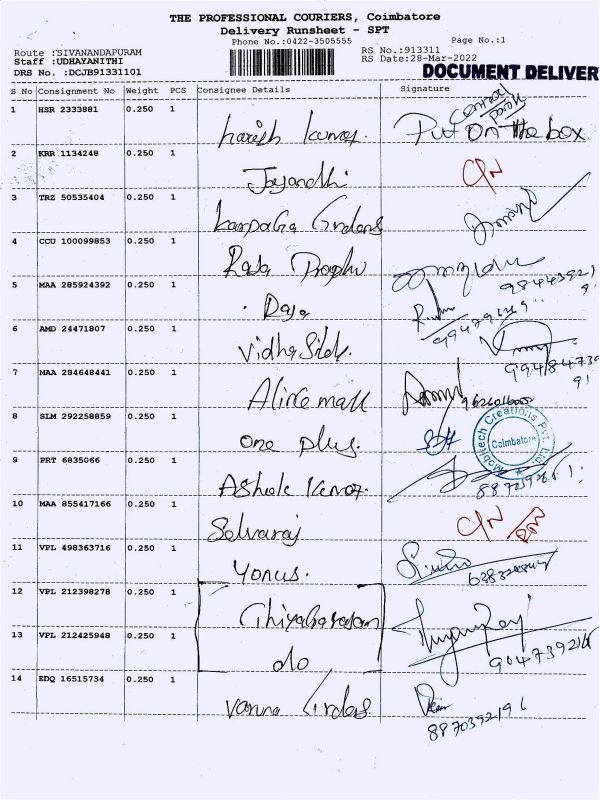 THE PROFESSIONAL COURIERS, Coimbatore
Delivery Runsheet - SPT
Phone No.:0422-3505555
Page No.:1
Route :SIVANANDAPURAM
Staff :UDHAYANITHI
DRS No. :DCJB91331101
RS No.:913311
RS Date:28-Mar-2022
DOCUMENT DELIVER
S No Consignment No Weight PCS Consignee Details Signature
1 HSR 2333881 0.250 1 harish kumar. Put On the box
2 KRR 1134248 0.250 1 Jayandhi C/N
3 TRZ 50535404 0.250 1 karpaga Gardens
4 CCU 100099853 0.250 1 Raja Prabhu
5 MAA 285924392 0.250 1 Raja
6 AMD 24471807 0.250 1 Vidha
7 MAA 284648441 0.250 1 Alice mall
8 SLM 292258859 0.250 1 one plus.
Mobitech Creations Pvt. Ltd.
Coimbatore
9 PRT 6835066 0.250 1 Ashok kumar.
10 MAA 855417166 0.250 1 Selvaraj C/N
11 VPL 498363716 0.250 1 Yonus.
12 VPL 212398278 0.250 1 Thiyagarajan
13 VPL 212425948 0.250 1 do
9047392161
14 EDQ 16515734 0.250 1 Varuna Gardens.
8870392196